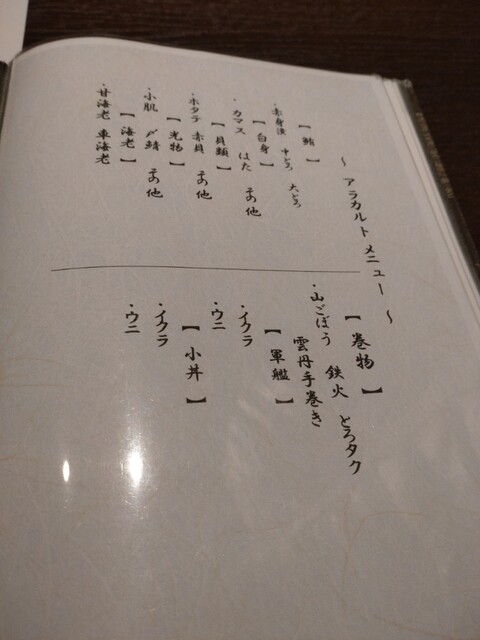 ～ アラカルトメニュー ～
【 鮪 】
・赤身漬 中とろ 大とろ
【 白身 】
・カマス はた その他
【 貝類 】
・ホタテ 赤貝 その他
【 光物 】
・小肌 〆鯖 その他
【 海老 】
・甘海老 車海老
【 巻物 】
・山ごぼう 鉄火 とろタク
雲丹手巻き
【 軍艦 】
・イクラ
・ウニ
【 小丼 】
・イクラ
・ウニ